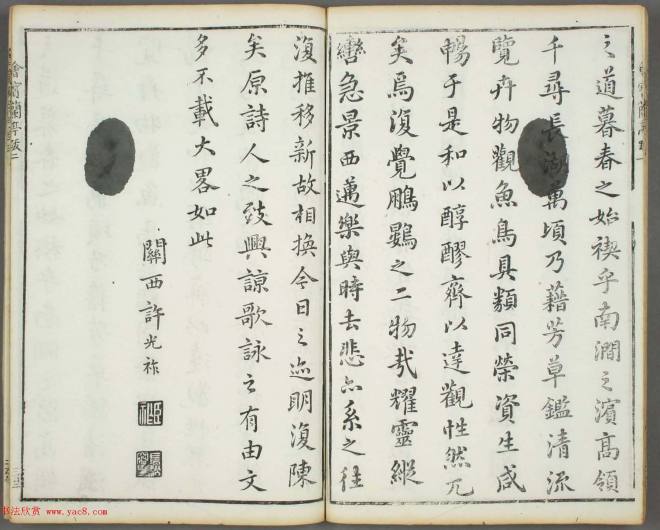 之道暮春之始禊乎南澗之濱高領
千尋長湖萬頃乃藉芳草鑑清流
覽卉物觀魚鳥具類同榮資生咸
暢于是和以醇醪齊以達觀怳然兀
矣焉復覺鵬鷃之二物哉耀靈縱
轡急景西邁樂與時去悲亦系之往
復推移新故相換今日之迹明復陳
矣原詩人之致興諒歌詠之有由文
多不載大畧如此
關西許光祚
會稽蘭亭跋二
书法欣赏 www.yac8.com